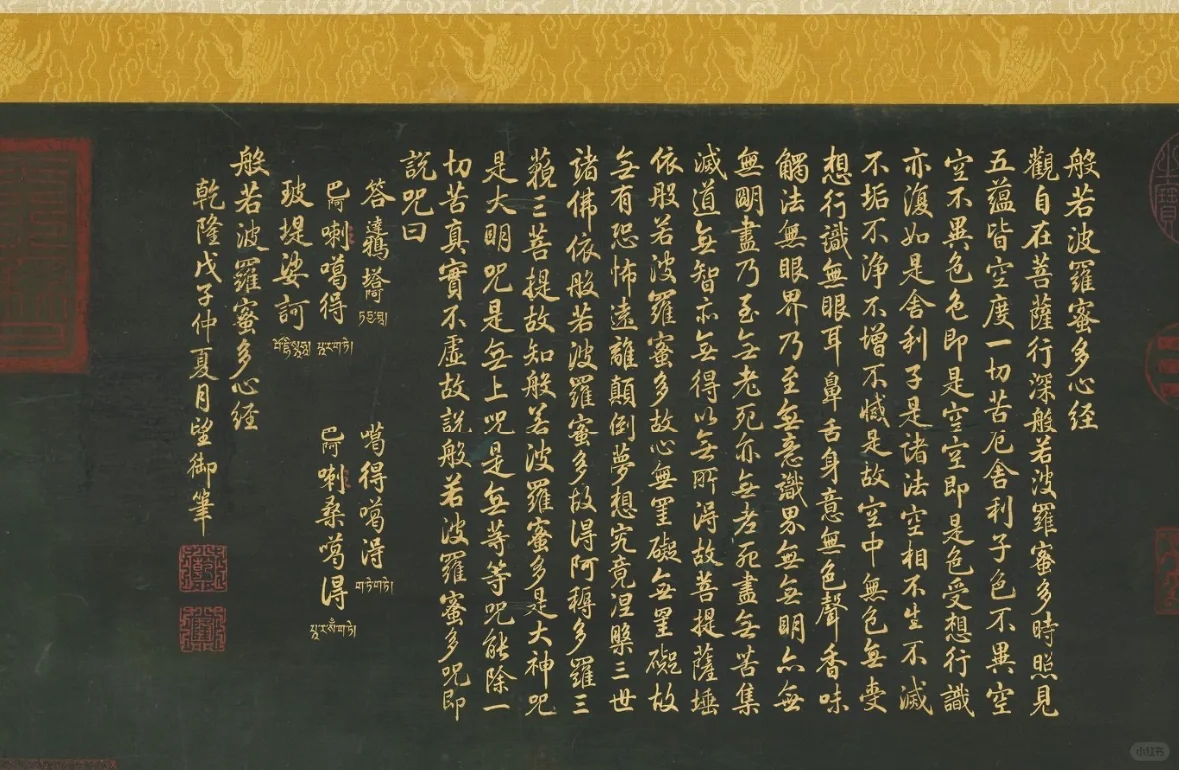 般若波羅蜜多心経
觀自在菩薩行深般若波羅蜜多時照見
五蘊皆空度一切苦厄舍利子色不異空
空不異色色即是空空即是色受想行識
亦復如是舍利子是諸法空相不生不滅
不垢不浄不增不減是故空中無色无受
想行識無眼耳鼻舌身意無色聲香味
觸法無眼界乃至无意識界無無明亦無
無明盡乃至无老死亦无老死盡无苦集
滅道无智亦无得以无所得故菩提薩埵
依般若波羅蜜多故心無罣礙无罣礙故
无有恐怖遠離顛倒夢想究竟涅槃三世
諸佛依般若波羅蜜多故得阿耨多羅三
藐三菩提故知般若波羅蜜多是大神咒
是大明咒是无上咒是无等等咒能除一
切苦真實不虛故說般若波羅蜜多咒即
說咒曰
答噶得噶得 གཏེགཏེ
巴阿喇噶得 巴阿喇桑噶得
玻提娑訶
般若波羅蜜多心経
乾隆戊子仲夏月望御筆
乾
隆
小红书